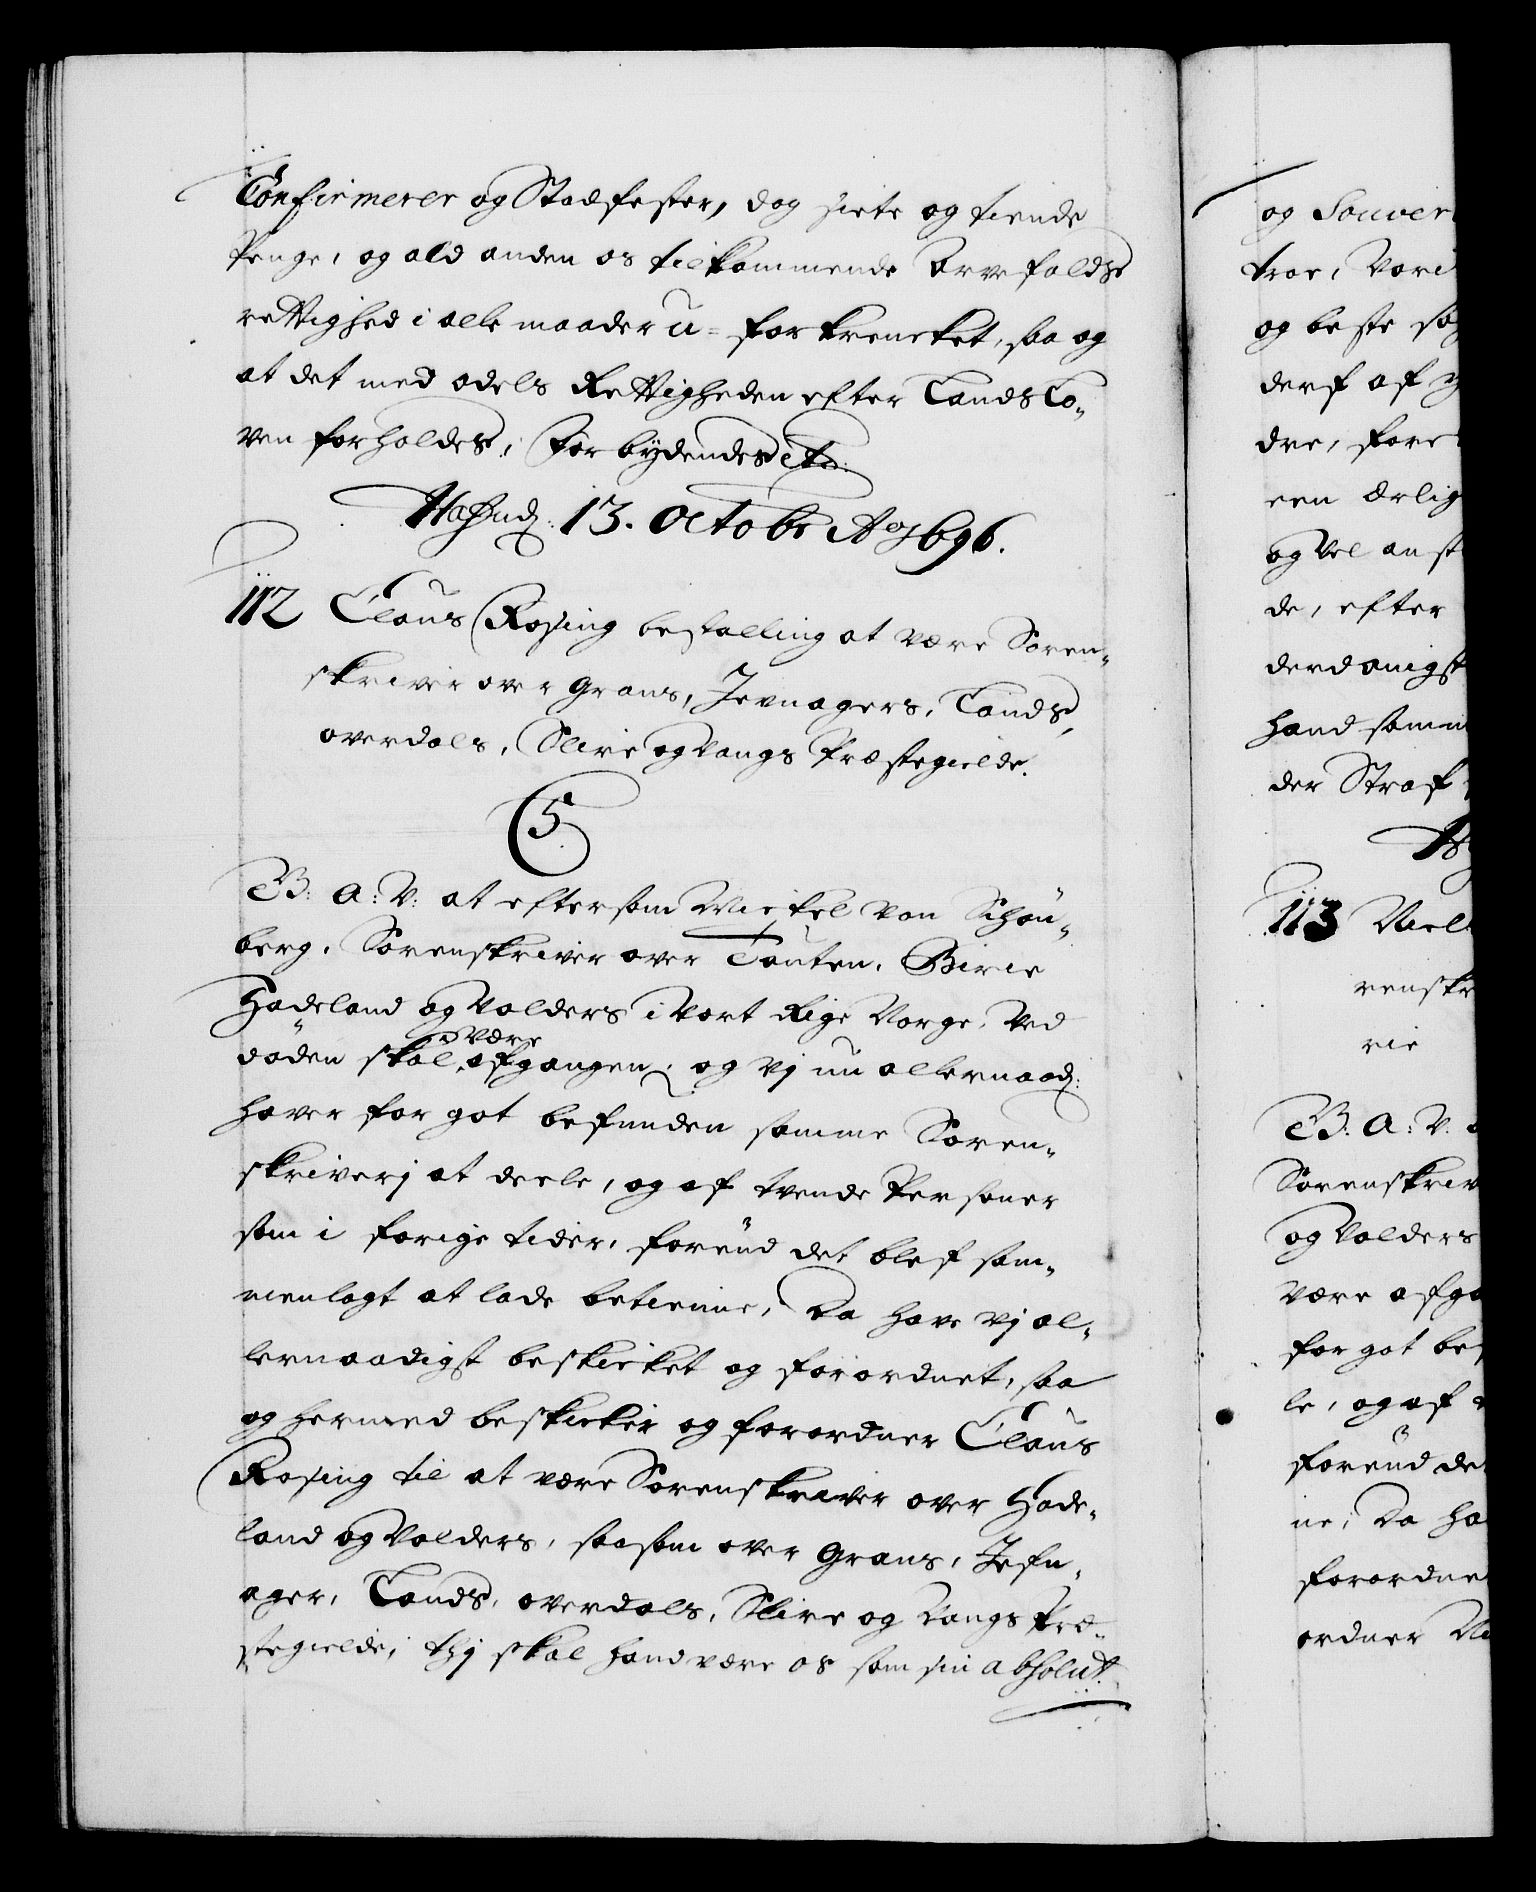 Confirmerer og Stadfester, dog siete og tiende
Penge, og ald anden os tilkommende Arvefalds
rettighed i alle maader u-forkrencket, saa og
at det med odels Rettigheden efter Lands Lo-
ven forholdes, Forbydendes etc:
Hafniæ: 13. Octobr Ao 1696.
112 Claus Rosing bestalling at være Soren-
skriver over Grans, Jevnagers, Lands,
overdals, Slire og Vangs Præstegielde.
C5
G. A. V. at eftersom Wiefel von Schön-
berg, Sorenskriver over Toten, Birie
Hadeland og Valders i Vort Rige Norge, ved
døden skal være afgangen, og Vj nu allernaad:
haver for got befunden samme Soren-
skriverj at deele, og af tvende Personer
som i forige tider, forend det blef sam-
menlagt at lade betienne, Da have Vj al-
lernaadigst beskicket og forordnet, saa
og hermed beskicker og forordner Claus
Rosing til at være Sorenskriver over Hade-
land og Valders, saasom over Grans, Jefn-
ager, Lands, overdals, Slire og Vangs Præ-
stegielde, thj skal hand være os som sin absolut
og Souver
troe, Vori
og beste sø
derf af y
dre, fore
een Ærlig
og Vel anst
de, efter
derdanigst
hand samm
der Straf
113 Niel
renskr
rie
G. A. V.
Sorenskriv
og Valders
være afga
for got bef
le, og af
forend de
ne, Da ha
forordne
ordner Ni